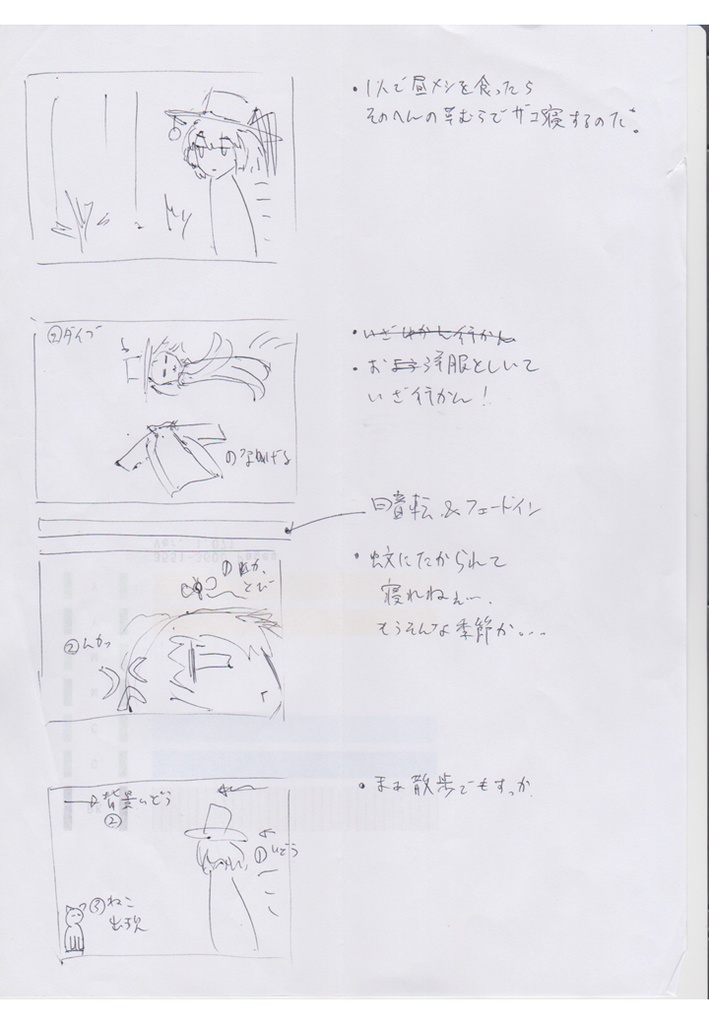 ・1人で昼メシを食ったら
そのへんの草むらでザコ寝するのだ。
②ダイブ
・いざゆかん行かん
・お洋服としいて
いざ行かん！
のなげる
回転&フェードイン
・蚊にたかられて
寝れねぇ…
もうそんな季節か…
① とび
②
・まぁ散歩でもすっか
背景いどう
②
①いどう
③ねこ
出現